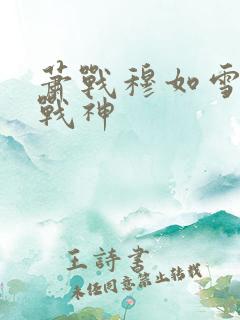 蕭戰穆如雪
戰神
王詩書
未經同意禁止轉載